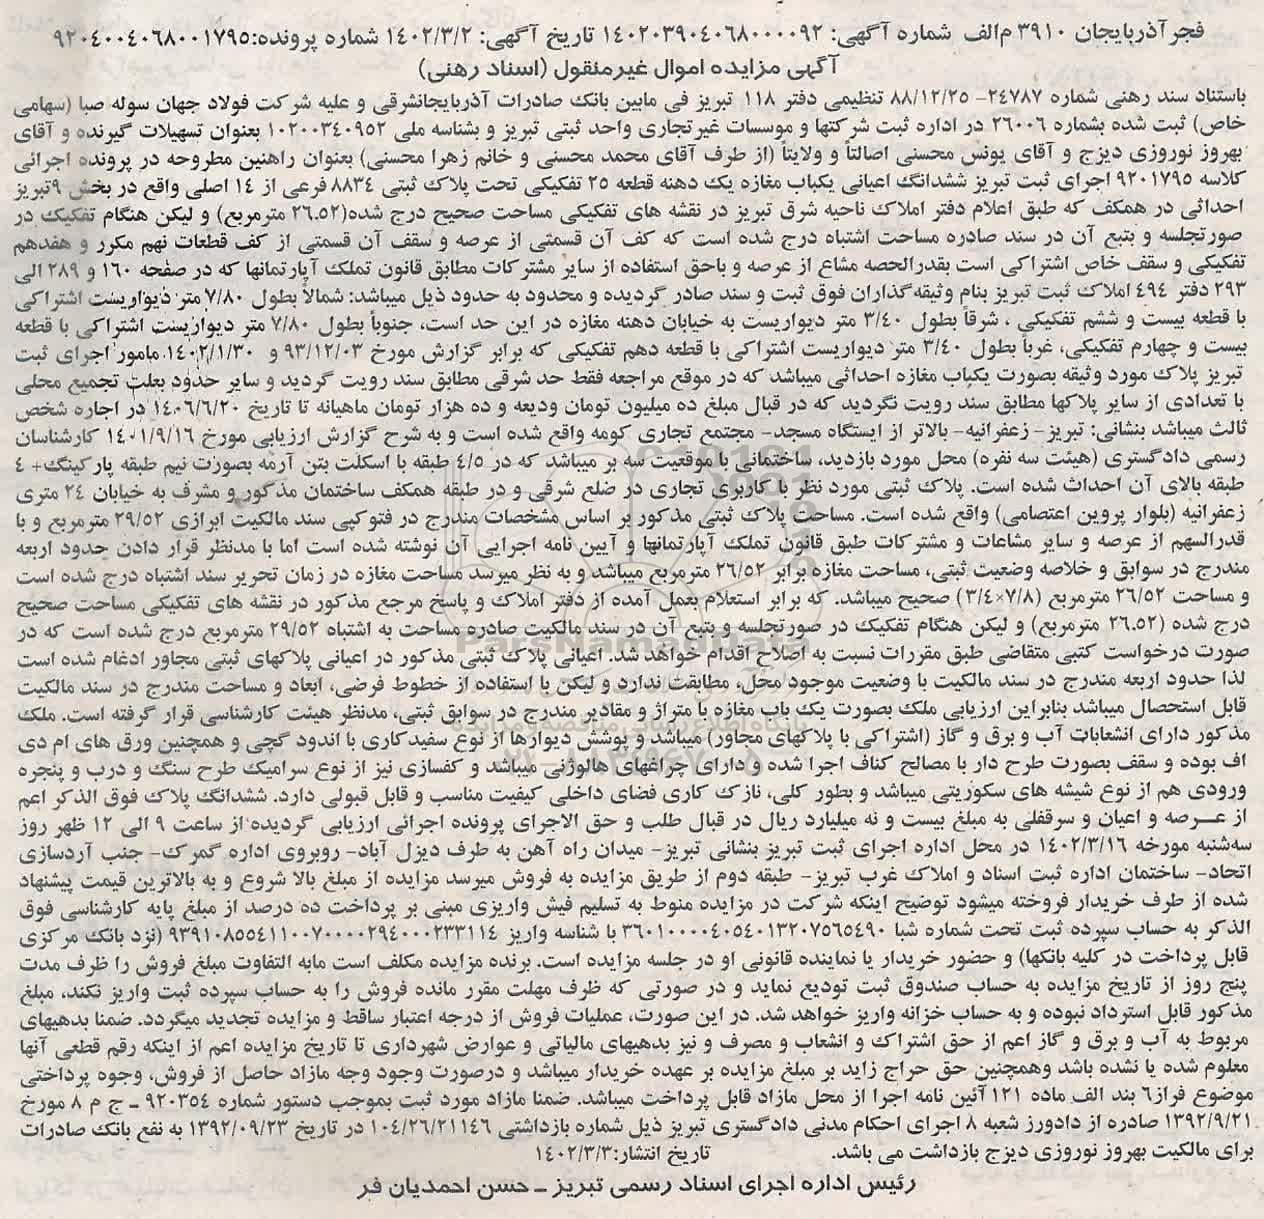 فجر آذربایجان ۳۹۱۰ م‌الف شماره آگهی: ۱۴۰۲۰۳۹۰۴۰۶۸۰۰۰۰۹۲ تاریخ آگهی: ۱۴۰۲/۳/۲ شماره پرونده:۹۲۰۴۰۰۴۰۶۸۰۰۱۷۹۵
آگهی مزایده اموال غیرمنقول (اسناد رهنی)
باستناد سند رهنی شماره ۲۴۷۸۷- ۸۸/۱۲/۲۵ تنظیمی دفتر ۱۱۸ تبریز فی مابین بانک صادرات آذربایجانشرقی و علیه شرکت فولاد جهان سوله صبا (سهامی
خاص) ثبت شده بشماره ۲۶۰۰۶ در اداره ثبت شرکتها و موسسات غیرتجاری واحد ثبتی تبریز و بشناسه ملی ۱۰۲۰۰۳۴۰۹۵۲ بعنوان تسهیلات گیرنده و آقای
بهروز نوروزی دیزج و آقای یونس محسنی اصالتاً و ولایتاً (از طرف آقای محمد محسنی و خانم زهرا محسنی) بعنوان راهنین مطروحه در پرونده اجرائی
کلاسه ۹۲۰۱۷۹۵ اجرای ثبت تبریز ششدانگ اعیانی یکباب مغازه یک دهنه قطعه ۲۵ تفکیکی تحت پلاک ثبتی ۸۸۳۴ فرعی از ۱۴ اصلی واقع در بخش ۹تبریز
احداثی در همکف که طبق اعلام دفتر املاک ناحیه شرق تبریز در نقشه های تفکیکی مساحت صحیح درج شده(۲۶.۵۲ مترمربع) و لیکن هنگام تفکیک در
صورتجلسه و بتبع آن در سند صادره مساحت اشتباه درج شده است که کف آن قسمتی از عرصه و سقف آن قسمتی از کف قطعات نهم مکرر و هفدهم
تفکیکی و سقف خاص اشتراکی است بقدرالحصه مشاع از عرصه و باحق استفاده از سایر مشترکات مطابق قانون تملک آپارتمانها که در صفحه ۱۶۰ و ۲۸۹ الی
۲۹۳ دفتر ۴۹۴ املاک ثبت تبریز بنام وثیقه گذاران فوق ثبت و سند صادر گردیده و محدود به حدود ذیل میباشد: شمالاً بطول ۷/۸۰ متر دیواریست اشتراکی
با قطعه بیست و ششم تفکیکی ، شرقاً بطول ۳/۴۰ متر دیواریست به خیابان دهنه مغازه در این حد است، جنوباً بطول ۷/۸۰ متر دیواریست اشتراکی با قطعه
بیست و چهارم تفکیکی، غرباً بطول ۳/۴۰ متر دیواریست اشتراکی با قطعه دهم تفکیکی که برابر گزارش مورخ ۹۳/۱۲/۰۳ و ۱۴۰۲/۱/۳۰ مامور اجرای ثبت
تبریز پلاک مورد وثیقه بصورت یکباب مغازه احداثی میباشد که در موقع مراجعه فقط حد شرقی مطابق سند رویت گردید و سایر حدود بعلت تجمیع محلی
با تعدادی از سایر پلاکها مطابق سند رویت نگردید که در قبال مبلغ ده میلیون تومان ودیعه و ده هزار تومان ماهیانه تا تاریخ ۱۴۰۶/۶/۲۰ در اجاره شخص
ثالث میباشد بنشانی: تبریز- زعفرانیه- بالاتر از ایستگاه مسجد- مجتمع تجاری کومه واقع شده است و به شرح گزارش ارزیابی مورخ ۱۴۰۱/۹/۱۶ کارشناسان
رسمی دادگستری (هیئت سه نفره) محل مورد بازدید، ساختمانی با موقعیت سه بر میباشد که در ۴/۵ طبقه با اسکلت بتن آرمه بصورت نیم طبقه پارکینگ+ ۴
طبقه بالای آن احداث شده است. پلاک ثبتی مورد نظر با کاربری تجاری در ضلع شرقی و در طبقه همکف ساختمان مذکور و مشرف به خیابان ۲۴ متری
زعفرانیه (بلوار پروین اعتصامی) واقع شده است. مساحت پلاک ثبتی مذکور بر اساس مشخصات مندرج در فتوکپی سند مالکیت ابرازی ۲۹/۵۲ مترمربع و با
قدرالسهم از عرصه و سایر مشاعات و مشترکات طبق قانون تملک آپارتمانها و آیین نامه اجرایی آن نوشته شده است اما با مدنظر قرار دادن حدود اربعه
مندرج در سوابق و خلاصه وضعیت ثبتی، مساحت مغازه برابر ۲۶/۵۲ مترمربع میباشد و به نظر میرسد مساحت مغازه در زمان تحریر سند اشتباه درج شده است
و مساحت ۲۶/۵۲ مترمربع (۷/۸×۳/۴) صحیح میباشد. که برابر استعلام بعمل آمده از دفتر املاک و پاسخ مرجع مذکور در نقشه های تفکیکی مساحت صحیح
درج شده (۲۶.۵۲ مترمربع) و لیکن هنگام تفکیک در صورتجلسه و بتبع آن در سند مالکیت صادره مساحت به اشتباه ۲۹/۵۲ مترمربع درج شده است که در
صورت درخواست کتبی متقاضی طبق مقررات نسبت به اصلاح اقدام خواهد شد. اعیانی پلاک ثبتی مذکور در اعیانی پلاکهای ثبتی مجاور ادغام شده است
لذا حدود اربعه مندرج در سند مالکیت با وضعیت موجود محل، مطابقت ندارد و لیکن با استفاده از خطوط فرضی، ابعاد و مساحت مندرج در سند مالکیت
قابل استحصال میباشد بنابراین ارزیابی ملک بصورت یک باب مغازه با متراژ و مقادیر مندرج در سوابق ثبتی، مدنظر هیئت کارشناسی قرار گرفته است. ملک
مذکور دارای انشعابات آب و برق و گاز (اشتراکی با پلاکهای مجاور) میباشد و پوشش دیوارها از نوع سفیدکاری با اندود گچی و همچنین ورق های ام دی
اف بوده و سقف بصورت طرح دار با مصالح کناف اجرا شده و دارای چراغهای هالوژنی میباشد و کفسازی نیز از نوع سرامیک طرح سنگ و درب و پنجره
ورودی هم از نوع شیشه های سکوریتی میباشد و بطور کلی، نازک کاری فضای داخلی کیفیت مناسب و قابل قبولی دارد. ششدانگ پلاک فوق الذکر اعم
از عـــرصه و اعیان و سرقفلی به مبلغ بیست و نه میلیارد ریال در قبال طلب و حق الاجرای پرونده اجرائی ارزیابی گردیده از ساعت ۹ الی ۱۲ ظهر روز
سه‌شنبه مورخه ۱۴۰۲/۳/۱۶ در محل اداره اجرای ثبت تبریز بنشانی تبریز- میدان راه آهن به طرف دیزل آباد- روبروی اداره گمرک- جنب آردسازی
اتحاد- ساختمان اداره ثبت اسناد و املاک غرب تبریز- طبقه دوم از طریق مزایده به فروش میرسد مزایده از مبلغ بالا شروع و به بالاترین قیمت پیشنهاد
شده از طرف خریدار فروخته میشود توضیح اینکه شرکت در مزایده منوط به تسلیم فیش واریزی مبنی بر پرداخت ده درصد از مبلغ پایه کارشناسی فوق
الذکر به حساب سپرده ثبت تحت شماره شبا ۳۶۰۱۰۰۰۰۴۰۵۴۰۱۳۲۰۷۵۶۵۴۹۰ با شناسه واریز ۹۳۹۱۰۸۵۵۴۱۱۰۰۷۰۰۰۰۲۹۴۰۰۰۲۳۳۱۱۴ (نزد بانک مرکزی
قابل پرداخت در کلیه بانکها) و حضور خریدار یا نماینده قانونی او در جلسه مزایده است. برنده مزایده مکلف است مابه التفاوت مبلغ فروش را ظرف مدت
پنج روز از تاریخ مزایده به حساب صندوق ثبت تودیع نماید و در صورتی که ظرف مهلت مقرر مانده فروش را به حساب سپرده ثبت واریز نکند، مبلغ
مذکور قابل استرداد نبوده و به حساب خزانه واریز خواهد شد. در این صورت، عملیات فروش از درجه اعتبار ساقط و مزایده تجدید میگردد. ضمنا بدهیهای
مربوط به آب و برق و گاز اعم از حق اشتراک و انشعاب و مصرف و نیز بدهیهای مالیاتی و عوارض شهرداری تا تاریخ مزایده اعم از اینکه رقم قطعی آنها
معلوم شده یا نشده باشد وهمچنین حق حراج زاید بر مبلغ مزایده بر عهده خریدار میباشد و درصورت وجود وجه مازاد حاصل از فروش، وجوه پرداختی
موضوع فراز۶ بند الف ماده ۱۲۱ آئین نامه اجرا از محل مازاد قابل پرداخت میباشد. ضمنا مازاد مورد ثبت بموجب دستور شماره ۹۲۰۳۵۴ ـ ج م ۸ مورخ
۱۳۹۲/۹/۲۱ صادره از دادورز شعبه ۸ اجرای احکام مدنی دادگستری تبریز ذیل شماره بازداشتی ۱۰۴/۲۶/۲۱۱۴۶ در تاریخ ۱۳۹۲/۰۹/۲۳ به نفع بانک صادرات
برای مالکیت بهروز نوروزی دیزج بازداشت می باشد. تاریخ انتشار:۱۴۰۲/۳/۳
رئیس اداره اجرای اسناد رسمی تبریز ـ حسن احمدیان فر